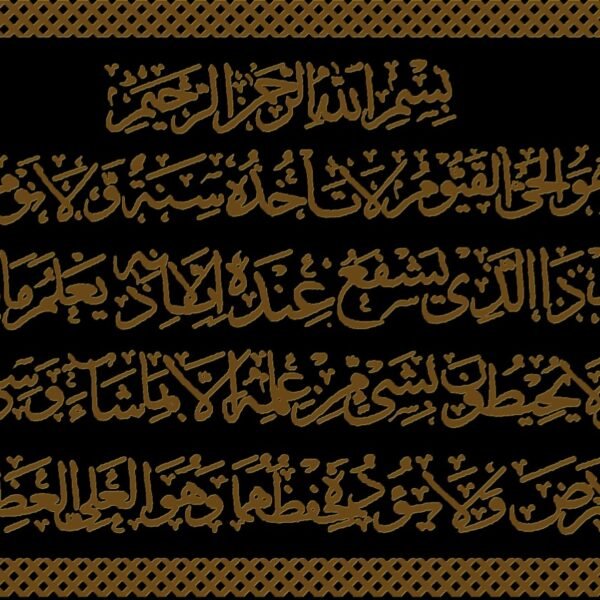 بسم الله الرحمن الرحيم
هو الحي القيوم لا تأخذه سنة ولا نوم
ذا الذي يشفع عنده إلا بإذنه يعلم ما
يحيطون بشيء من علمه إلا بما شاء وسع
ولا يؤده حفظهما وهو العلي العظ